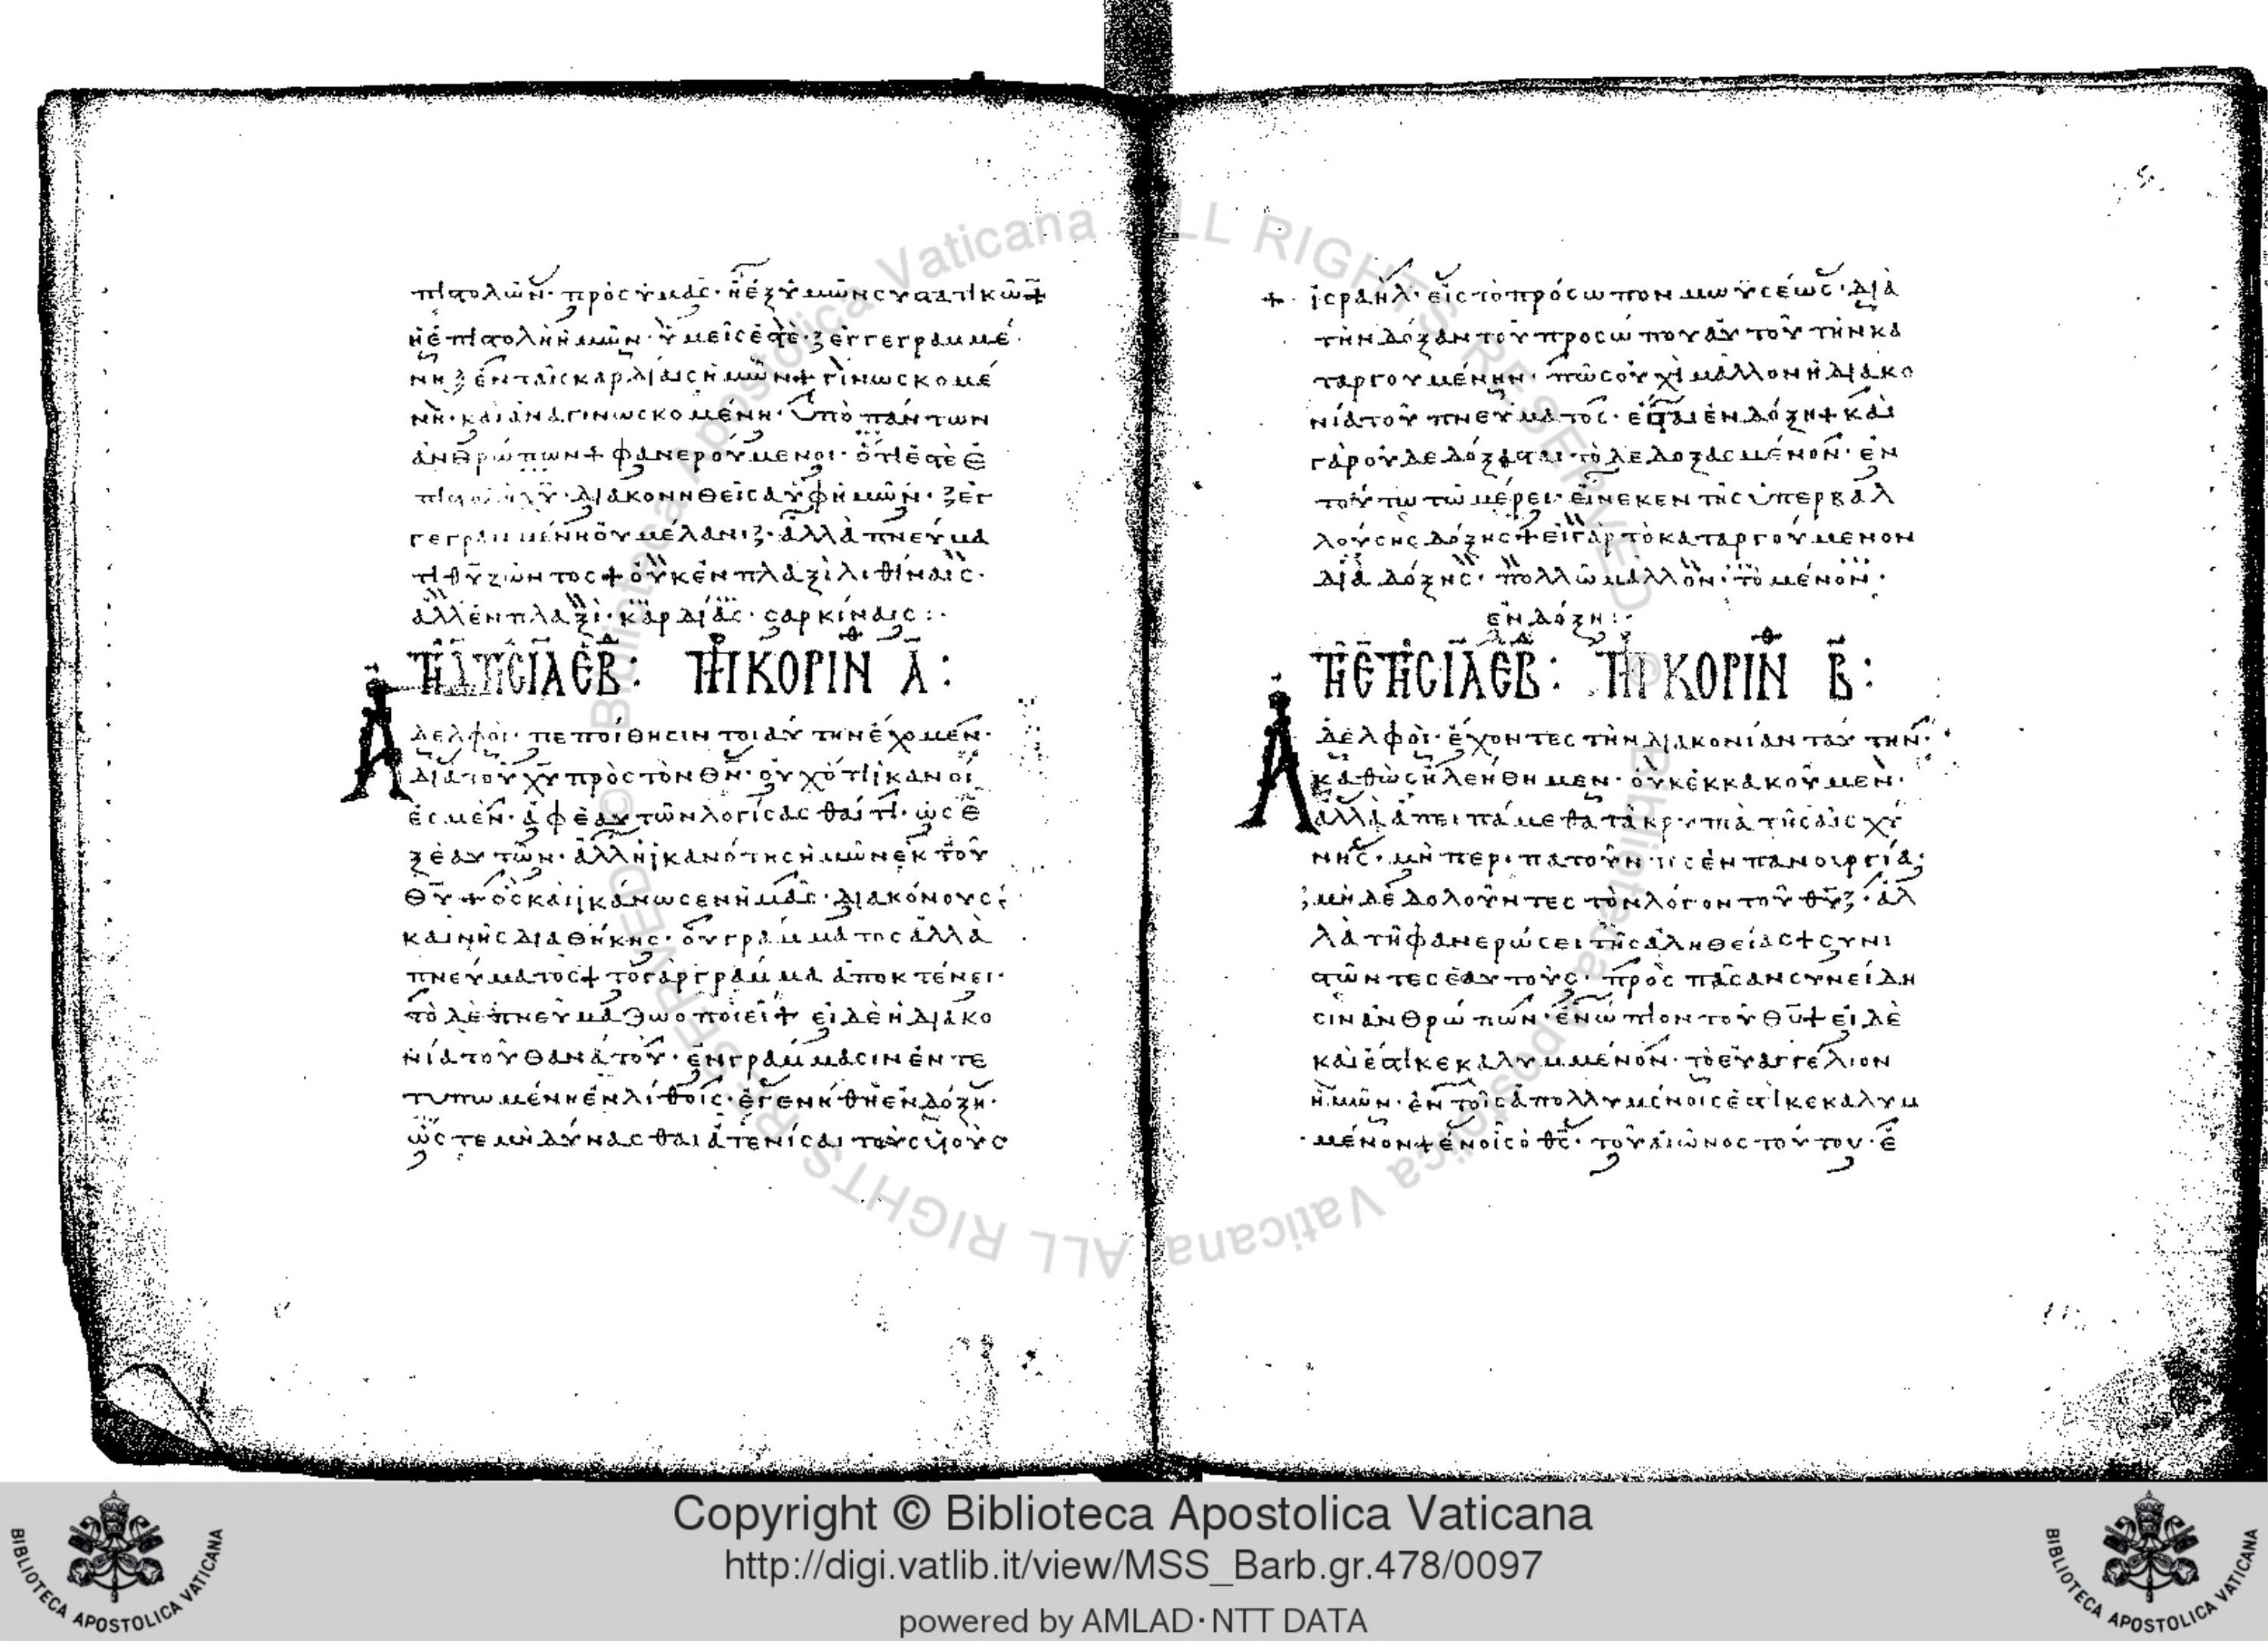 πιστολῶν· πρὸς ὑμᾶς· ἢ ἐξ ὑμῶν συστατικῶν +
ἡ ἐπιστολὴ ἡμῶν· ὑμεῖς ἐστὲ· ἐγγεγραμμέ
νη ἐν ταῖς καρδίαις ἡμῶν + γινωσκομέ
νη· καὶ ἀναγινωσκομένη· ὑπὸ πάντων
ἀνθρώπων + φανερούμενοι· ὅτι ἐστὲ ἐ
πιστολὴ χυ· διακονηθεῖσα ὑφ ἡμῶν· ἐγ
γεγραμμένη οὐ μέλανι· ἀλλὰ πνεύμα
τι θυ ζῶντος + οὐκ ἐν πλαξὶ λιθίναις·
ἀλλ ἐν πλαξὶ· καρδίας· σαρκίναις :·
ΚΟΡΙΝ Α :
Ἀδελφοὶ· πεποίθησιν τοιαύτην ἔχομεν·
διὰ τοῦ χυ πρὸς τὸν θν· οὐχ ὅτι ἱκανοί
ἐσμεν· ἀφ ἑαυτῶν λογίσασθαί τι· ὡς ἐ
ξ ἑαυτῶν· ἀλλ ἡ ἱκανότης ἡμῶν ἐκ τοῦ
θυ + ὃς καὶ ἱκάνωσεν ἡμᾶς· διακόνους
καινῆς διαθήκης· οὐ γράμματος ἀλλὰ
πνεύματος + τὸ γὰρ γράμμα ἀποκτένει·
τὸ δὲ πνεῦμα ζωοποιεῖ + εἰ δὲ ἡ διακο
νία τοῦ θανάτου· ἐν γράμμασιν ἐντε
τυπωμένη ἐν λίθοις· ἐγενήθη ἐν δόξη·
ὥστε μὴ δύνασθαι ἀτενίσαι τοὺς υἱοὺς
+ ἰσραὴλ· εἰς τὸ πρόσωπον μωϋσέως· διὰ
τὴν δόξαν τοῦ προσώπου αὐτοῦ τὴν κα
ταργουμένην· πῶς οὐχὶ μᾶλλον ἡ διακο
νία τοῦ πνεύματος· ἔσται ἐν δόξη + καὶ
γὰρ οὐ δεδόξασται· τὸ δεδοξασμένον· ἐν
τούτω τῶ μέρει· εἵνεκεν τῆς ὑπερβαλ
λούσης δόξης + εἰ γὰρ τὸ καταργούμενον
διὰ δόξης· πολλῶ μᾶλλον· τὸ μένον·
ἐν δόξη :·
ΚΟΡΙΝ Β :
Ἀδελφοὶ· ἔχοντες τὴν διακονίαν ταύτην·
καθὼς ἠλεήθημεν· οὐκ ἐκκακοῦμεν·
ἀλλὰ ἀπειπάμεθα τὰ κρυπτὰ τῆς αἰσχύ
νης· μὴ περιπατοῦντες ἐν πανουργία·
μηδὲ δολοῦντες τὸν λόγον τοῦ θυ· ἀλ
λὰ τῆ φανερώσει τῆς ἀληθείας + συνι
στῶντες ἑαυτοὺς· πρὸς πᾶσαν συνείδη
σιν ἀνθρώπων· ἐνώπιον τοῦ θυ + εἰ δὲ
καὶ ἐστὶ κεκαλυμμένον· τὸ εὐαγγέλιον
ἡμῶν· ἐν τοῖς ἀπολλυμένοις ἐστὶ κεκαλυμ
μένον + ἐν οἷς ὁ θς· τοῦ αἰῶνος τούτου· ἐ
Copyright © Biblioteca Apostolica Vaticana
http://digi.vatlib.it/view/MSS_Barb.gr.478/0097
powered by AMLAD·NTT DATA